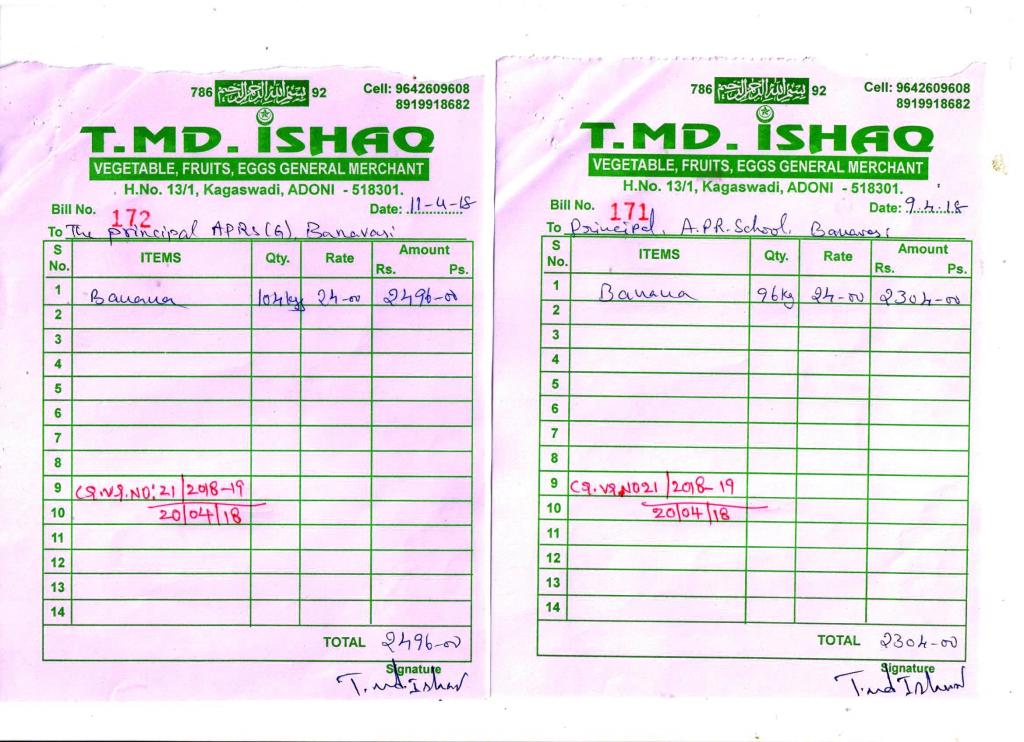 786 بسم الله الرحمن الرحيم 92 Cell: 9642609608
8919918682
T.MD. ISHAQ
VEGETABLE, FRUITS, EGGS GENERAL MERCHANT
H.No. 13/1, Kagaswadi, ADONI - 518301.
Bill No. 172 Date: 11-4-18
To The principal APRS(G), Banavasi
S No. ITEMS Qty. Rate Amount
Rs. Ps.
1 Banana 104kgs 24-00 2496-00
2
3
4
5
6
7
8
9 CS.VS.NO: 21/2018-19
10 20/04/18
11
12
13
14
TOTAL 2496-00
Signature
T.md.Ishaq
786 بسم الله الرحمن الرحيم 92 Cell: 9642609608
8919918682
T.MD. ISHAQ
VEGETABLE, FRUITS, EGGS GENERAL MERCHANT
H.No. 13/1, Kagaswadi, ADONI - 518301.
Bill No. 171 Date: 9.4.18
To Principal, A.P.R. School, Banavasi
S No. ITEMS Qty. Rate Amount
Rs. Ps.
1 Banana 96kg 24-00 2304-00
2
3
4
5
6
7
8
9 CS.VS.NO 21/2018-19
10 20/04/18
11
12
13
14
TOTAL 2304-00
Signature
T.md Ishaq